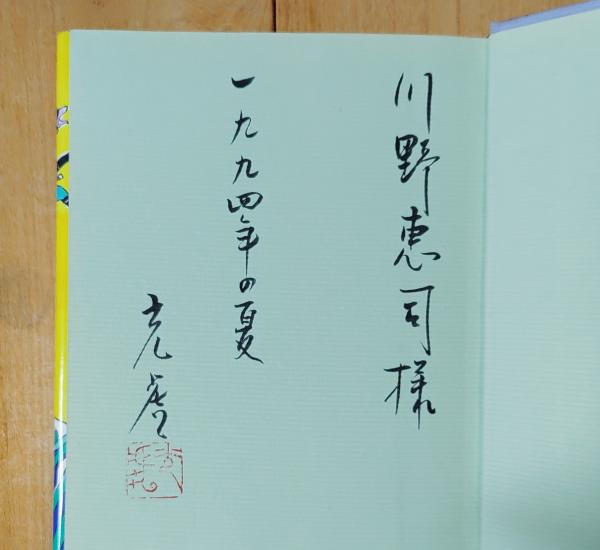 川野恵司様
一九九四年の夏